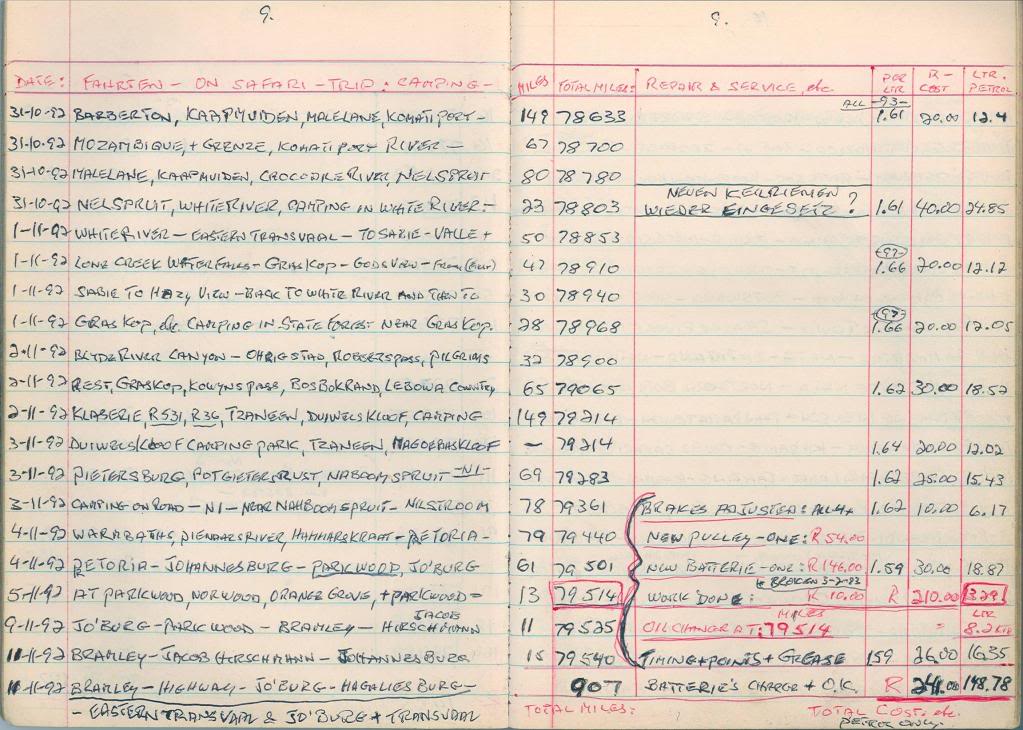 9.
9.
DATE: FAHRTEN - ON SAFARI - TRIP: CAMPING - MILES TOTAL MILES: REPAIR & SERVICE, etc PER LTR R- COST LTR. PETROL.
ALL -93-
31-10-92 BARBERTON, KAAPMUIDEN, MALELANE, KOMATIPORT - 149 78633 1.61 20.00 12.4
31-10-92 MOZAMBIQUE, + GRENZE, KOMATIPORT RIVER - 67 78700
31-10-92 MALELANE, KAAPMUIDEN, CROCODILE RIVER, NELSPRUIT 80 78780
NEUEN KEILRIEMEN
31-10-92 NELSPRUIT, WHITE RIVER, CAMPING IN WHITE RIVER - 23 78803 WIEDER EINGESETZ ? 1.61 40.00 24.85
1-11-92 WHITE RIVER - EASTERN TRANSVAAL - TO SABIE - VALLE + 50 78853
-97-
1-11-92 LONE CREEK WATERFALLS - GRASKOP - GODS VIEW - 47 78910 1.66 20.00 12.12
1-11-92 SABIE TO HAZY VIEW - BACK TO WHITE RIVER AND THEN TO 30 78940
-97-
1-11-92 GRASKOP, etc. CAMPING IN STATE FOREST NEAR GRASKOP. 28 78968 1.66 20.00 12.05
2-11-92 BLYDE RIVER CANYON - OHRIGSTAD, ROBBERSPASS, PILGRIMS 32 78900
2-11-92 REST, GRASKOP, KOWYNSPASS, BOSBOKRAND, LEBOWA COUNTRY, 65 79065 1.62 30.00 18.52
2-11-92 KLASERIE, R531, R36, TZANEEN, DUIWELSKLOOF, CAMPING 149 79214
3-11-92 DUIWELSKLOOF CAMPING PARK, TZANEEN, MAGOEBASKLOOF - 79214 1.64 20.00 12.02
3-11-92 PIETERSBURG, POTGIETERSRUST, NABOOMSPRUIT -N1- 69 79283 1.62 25.00 15.43
3-11-92 CAMPING ON ROAD - N1 - NEAR NAHBOOMSPRUIT - NILSTROOM 78 79361 BRAKES ADJUSTED: ALL 4x 1.62 10.00 6.17
4-11-92 WARMBATHS, PIENAARSRIVER, HAMMARSKRAFT - PETORIA - 79 79440 NEW PULLEY - ONE: R 54.00
4-11-92 PETORIA - JOHANNESBURG - PARKWOOD, JO'BURG 61 79501 NEW BATTERIE - ONE: R 146.00 1.59 30.00 18.87
BROKEN 3-2-93
5-11-92 AT PARKWOOD, NORWOOD, ORANGE GROVE, + PARKWOOD = 13 79514 WORK DONE: R 10.00 R 210.00 329!
JACOB MILES LTR
9-11-92 JO'BURG - PARKWOOD - BRAMLEY - HIRSCHMANN 11 79525 OIL CHANGE AT: 79514 = 8.2
11-11-92 BRAMLEY - JACOB HIRSCHMANN - JOHANNESBURG 15 79540 TIMING + POINTS + GREASE 159 26.00 16.35
11-11-92 BRAMLEY - HIGHWAY - JO'BURG - MAGALIESBURG - 907 BATTERIE'S CHARGE + O.K. R 241.00 148.78
- EASTERN TRANSVAAL & JO'BURG + TRANSVAAL TOTAL MILES: TOTAL COST: etc.
PETROL ONLY.